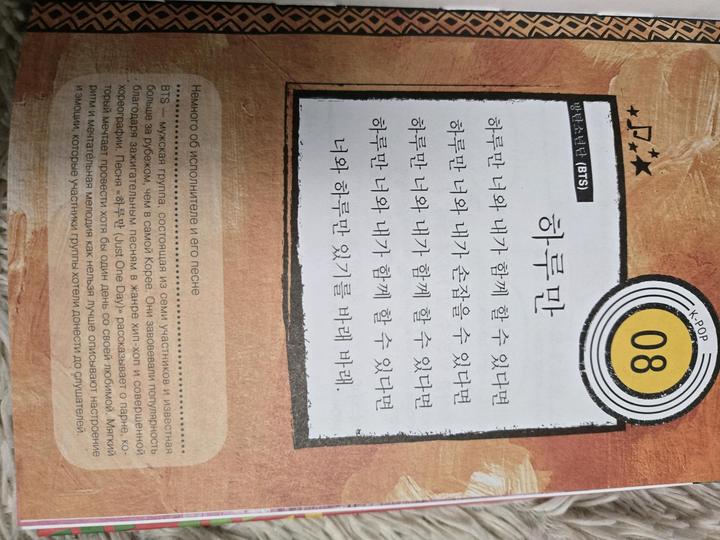 K-POP
08
하루만
방탄소년단 (BTS)
하루만 너와 내가 함께 할 수 있다면
하루만 너와 내가 손잡을 수 있다면
하루만 너와 내가 함께 할 수 있다면
하루만 너와 내가 함께 할 수 있다면
너와 하루만 있기를 바래 바래.
Немного об исполнителе и его песне
BTS — мужская группа, состоящая из семи участников и известная
больше за рубежом, чем в самой Корее. Они завоевали популярность
благодаря зажигательным песням в жанре хип-хоп и совершенной
хореографии. Песня «하루만 (Just One Day)» рассказывает о парне, ко-
торый мечтает провести хотя бы один день со своей любимой. Мягкий
ритм и мечтательная мелодия как нельзя лучше описывают настроение
и эмоции, которые участники группы хотели донести до слушателей.